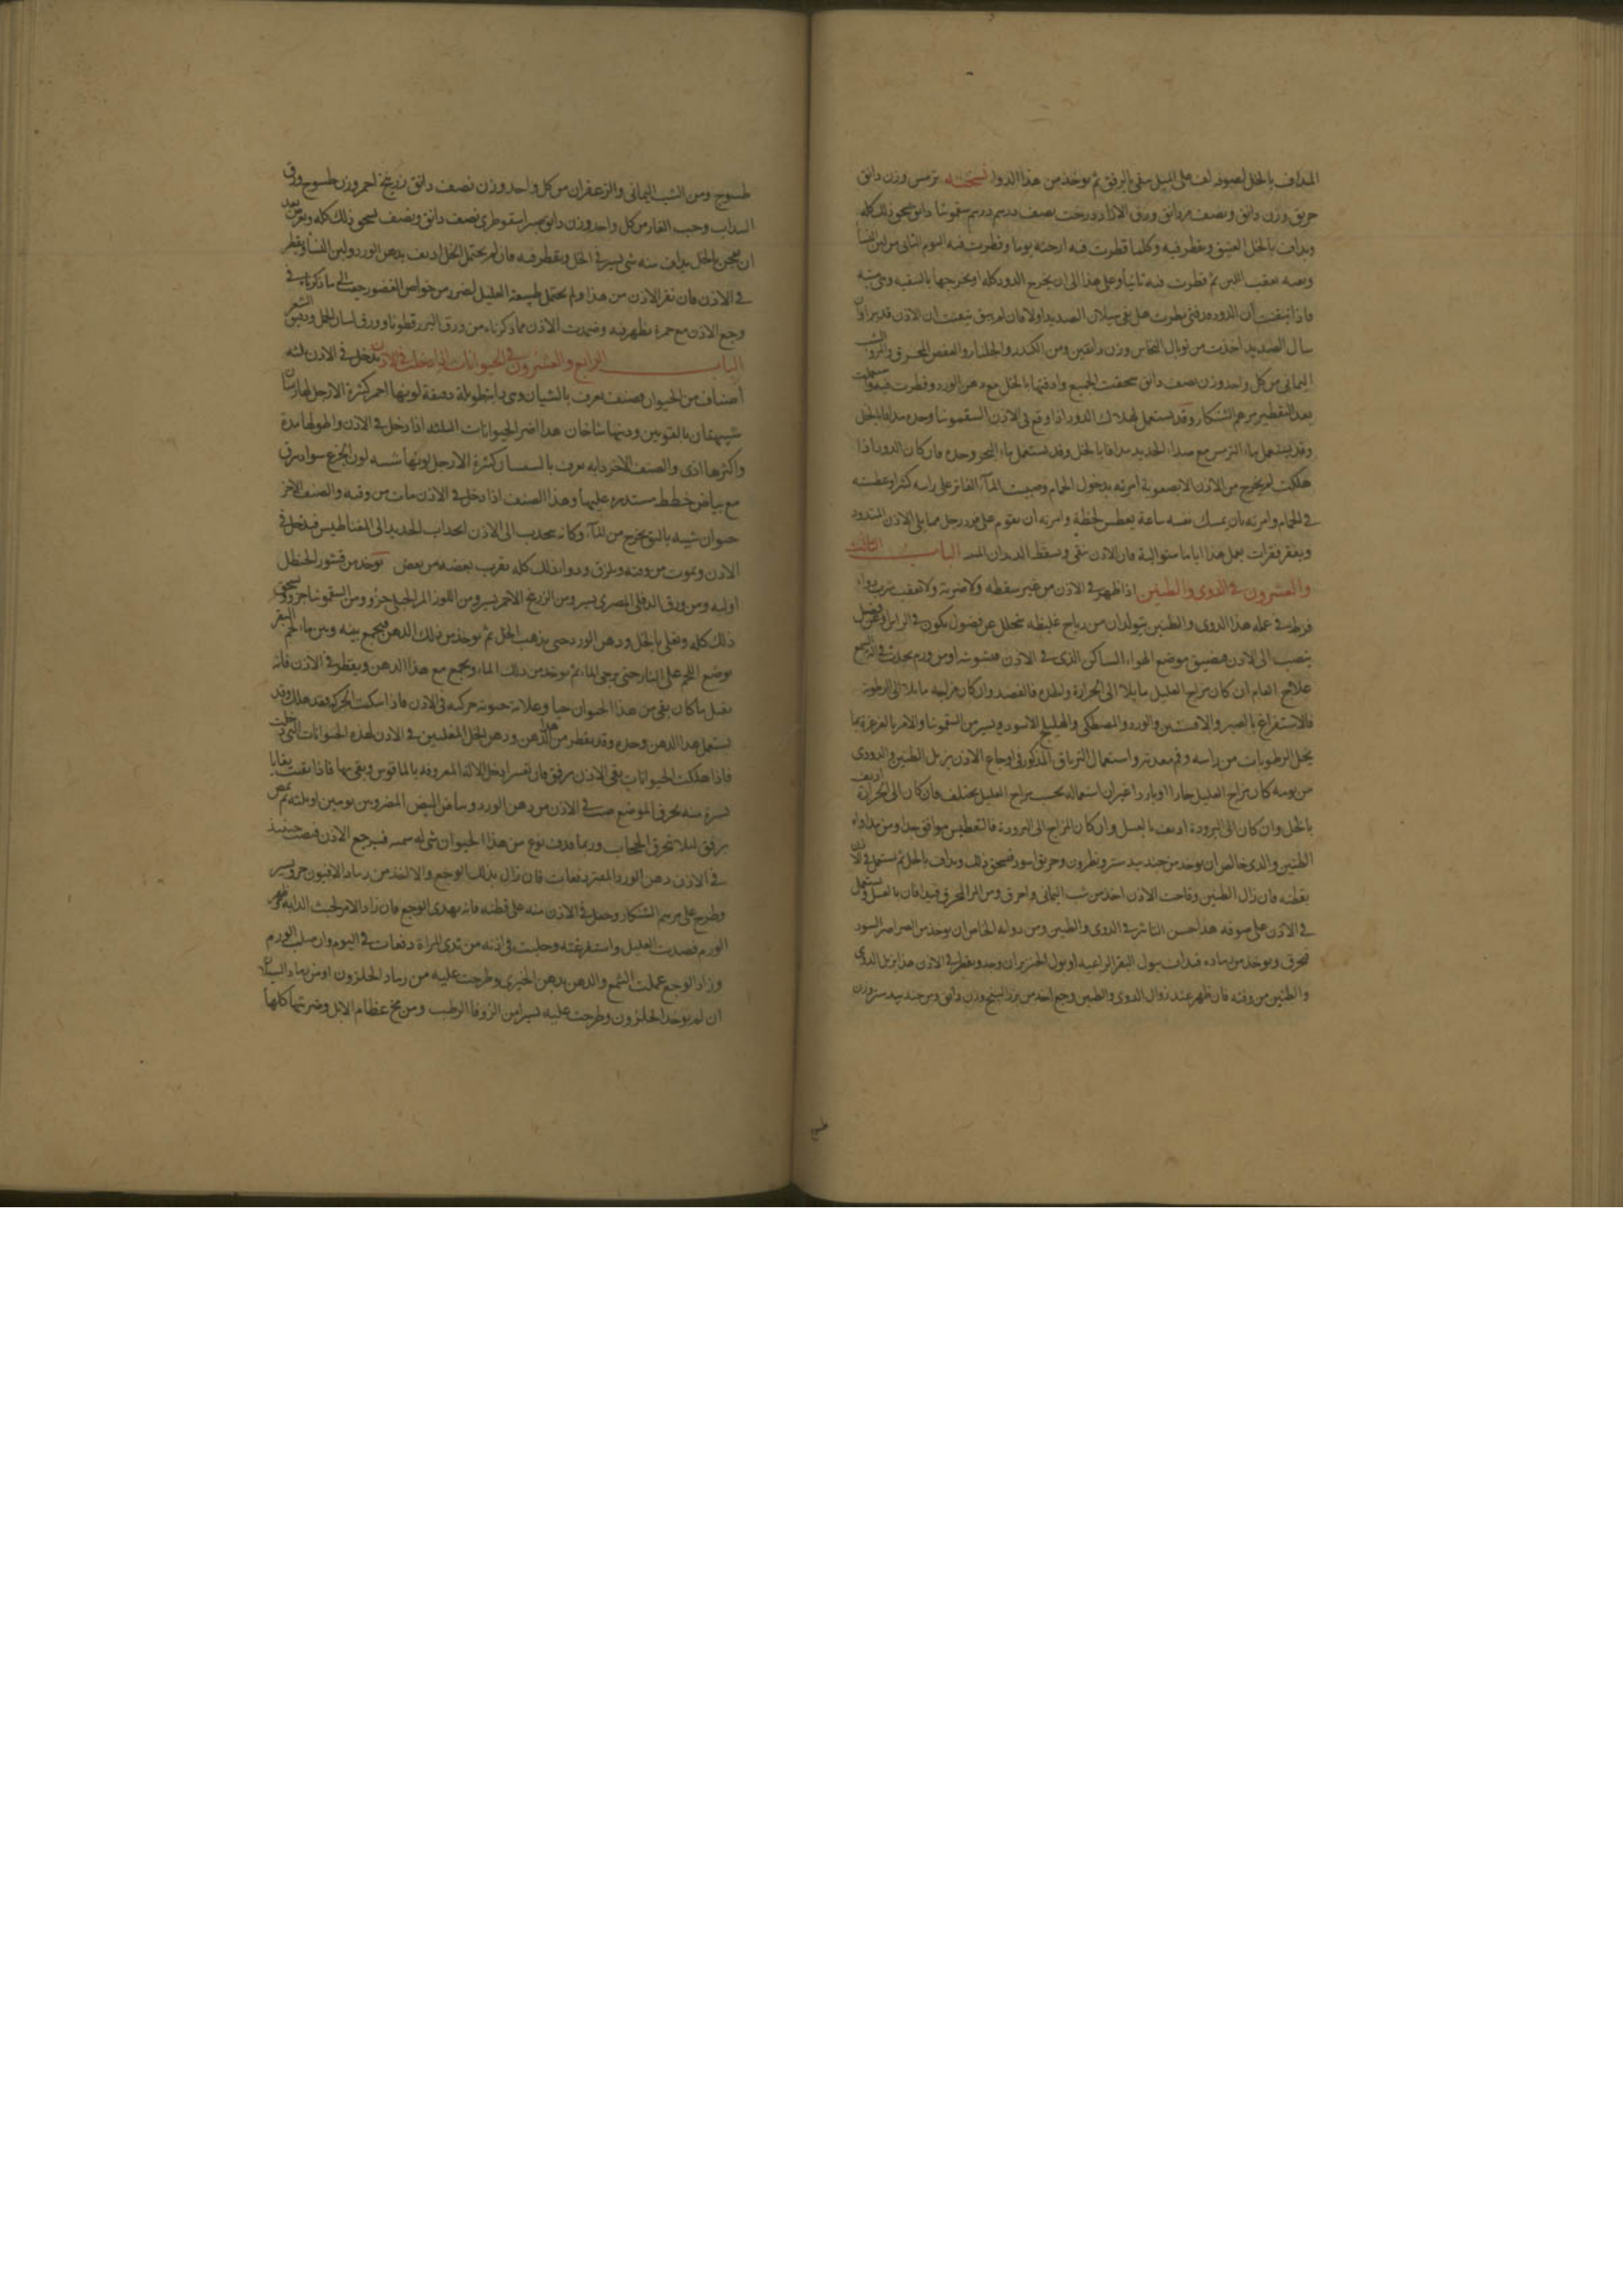 المداف بالخل بصوفه لف على الميل ينقى بالرفق ثم يوخذ من هذا الدوا نسخته ترمس وزن دانق
خربق وزن دانق ونصف مر دانق ورق الازاد درخت نصف درهم درهم سقمونيا دانق يسحق ذلك كله
ويداف بالخل العتيق ويقطر فيه وكلما قطرت فيه ارحته يوما وقطرت فيه اليوم الثانى من لبن النسا
وبعده بعقيب اللبن ثم قطرت فيه ثانيا وعلى هذا الى ان يخرج الدود كله او يخرجها بالتنقيه وهى ميته
فاذا تيقنت ان الدود قد فنى نظرت هل بقى سيلان الصديد اولا فان لم يبق تيقنت ان الاذن قد برا وان
سال الصديد اخذت من توبال النحاس وزن دانقين ومن الكندر والجلنار والعفص المحرق والشب
اليمانى من كل واحد وزن نصف دانق سحقت الجميع وادفتها بالخل مع دهن الورد وقطرت فيه واستعملت
بعد التقطير مرهم الشنكار وقد يستعمل لهلاك الدود اذا وقع فى الاذن السقمونيا وحده مدافا بالخل
وقد يستعمل ماء الترمس مع صداء الحديد مدافا بالخل وقد يستعمل ماء البحر وحده فان كان الدود اذا
هلكت لم يخرج من الاذن الا بصعوبة امرته بدخول الحمام وصببت الماء الفاتر على راسه كثيرا وعطسته
فى الحمام وامرته بان يمسك نفسه ساعة يعطس لحظة وامرته ان يقوم على فرد رجل مما يلى الاذن المتدود
ويقفز قفزات يعمل هذا اياما متوالية فان الاذن تنقى ويسقط الديدان الميت الباب الثالث
والعشرون فى الدوى والطنين اذا ظهر فى الاذن من غير سقطه ولا ضربة ولا بعقب شرب دواء
فرط فى عمله هذا الدوى والطنين يتولدان من رياح غليظه تتحلل عن فضول يكون فى الراس او عن فضل
ينصب الى الاذن فيضيق موضع الهواء الساكن الذى فى الاذن فيشوشه او من ورم يحدث فى آلة السمع
علاج العام ان كان مزاج العليل مايلا الى الحرارة والدم فالفصد وان كان مزاجه مايلا الى الرطوبة
فالاستفراغ بالصبر والافسنتين والورد والمصطكى والهليلج الاسود ويسير من السقمونيا والامر بالغرغرة بما
يحلل الرطوبات من راسه وفم معدته واستعمال الترياق المذكور فى اوجاع الاذن يزيل الطنين والدوى
من يومه كان مزاج العليل حارا او باردا غير ان استعماله بحسب مزاج العليل يختلف فان كان الى الحرارة اديف
بالخل وان كان الى البرودة اديف بالعسل وان كان المزاج الى البرودة فالتعطيس موافق جدا ومن مداواة
الطنين والدوى خالص ان يوخذ من جندبيدستر ونطرون وخربق اسود فيسحق ذلك ويداف بالخل ثم يستعمل فى الاذن
بقطنه فان زال الطنين وقاحت الاذن اخذ من شب اليمانى واحرق ومن المر المحرق فيدافان بالعسل ويستعمل
فى الاذن على صوفه هذا حسن التاثير فى الدوى والطنين ومن دوايه الخاص ان يوخذ من الصراصر السود
فيحرق ويوخذ من رماده فيداف ببول البقر الراعية او بول الخنزير ان وجد ويقطر فى الاذن هذا يزيل الدوى
والطنين من وقته فان ظهر عند زوال الدوى والطنين وجع اخذ من بزر البنج وزن دانق ومن جندبيدستر وزن
طسوج
طسوج ومن الشب اليمانى والزعفران من كل واحد وزن نصف دانق زرنيخ احمر وزن طسوج ورق
السداب وحب الغار من كل واحد وزن دانق صبر اسقوطرى نصف دانق ونصف يسحق ذلك كله ويقرص بعد
ان يعجن بالخل يداف منه شى يسير فى الخل ويقطر فيه فان لم يحتمل الخل اديف بدهن الورد ولبن النسا ويقطر
فى الاذن فان نفر الاذن من هذا ولم يحتمل طبيعة العليل لضرر من خواص العضو رجعت الى ما ذكرناه فى
وجع الاذن مع حمرة يظهر فيه وضمدت الاذن مما ذكرناه من ورق البزرقطونا وورق لسان الحمل ودقيق الشعير
الباب الرابع والعشرون فى الحيوانات التى تدخل فى الاذن يدخل فى الاذن ثلثه
اصناف من الحيوان فصنف يعرف بالشيان وهى دابة طويلة دقيقة لونها احمر كثيرة الارجل لها راسان
شبيهتان بالقوسين وذنبها شاخان هذا اضر الحيوانات الثلثه اذا دخل فى الاذن واطولها مدة
واكثرها اذى والصنف الاخر دابه يعرف بالسمسار كثيرة الارجل لونها شبيه لون الجزع سواد برق
مع بياض خطط مستديره عليها وهذا الصنف اذا دخل فى الاذن مات من وقته والصنف الاخر
حيوان شبيه بالبق يخرج من الماء وكانه يجذب الى الاذن انجذاب الحديد الى المغناطيس فيدخل فى
الاذن ويموت من وقته ويلزق ودوا ذلك كله يقرب بعضه من بعض يوخذ من قشور الحنظل
اوقيه ومن ورق الدفلى المصرى يسير ومن الزرنيخ الاحمر يسير ومن اللوز المر الجبلى جزو ومن السقمونيا جزو يسحق
ذلك كله ويغلى بالخل ودهن الورد حتى يذهب الخل ثم يوخذ من ذلك الدهن فيجمع بينه وبين ماء لحم البقر
يوضع اللحم على النار حتى يرخى الماء ثم يوخذ من ذلك الماء ويجمع مع هذا الدهن ويقطر فى الاذن فانه
يقتل ما كان بقى من هذا الحيوان حيا وعلامة حيوته حركته فى الاذن فاذا سكنت الحركة فقد هلك وقد
يستعمل هذا الدهن وحده وقد يقطر من هذا الدهن ودهن الخل المغليين فى الاذن لهذه الحيوانات التى دخلت
فاذا هلكت الحيوانات ينقى الاذن برفق فان تعسر ادخل الالة المعروفه بالماقوس وينقى بها فاذا بقيت بقايا
يسيرة منه يحرق الموضع صب فى الاذن من دهن الورد وبياض البيض المضروبين يومين او ثلثه ثم يمص
برفق ليلا تنخرق الحجاب وربما قذف نوع من هذا الحيوان شى له سمية فيوجع الاذن فيصب حينيذ
فى الاذن دهن الورد المفتر دفعات فان زال بذلك الوجع والا اخذ من رماد الافيون جزو يسير
وطرح على مرهم الشنكار وجعل فى الاذن منه على قطنه فانه يهدى الوجع فان زاد الامر لخبث الدابة وظهر
الورم فصدت العليل واستفرغته وحلبت فى اذنه من ثدى المراة دفعات فى اليوم وان صلب الورم
وزاد الوجع عملت الشمع والدهن بدهن الخيرى وطرحت عليه من رماد الحلزون او من رماد السبستان
ان لم يوجد الحلزون وطرحت عليه يسيرا من الزوفا الرطب ومن مخ عظام الابل وضربتها كلها